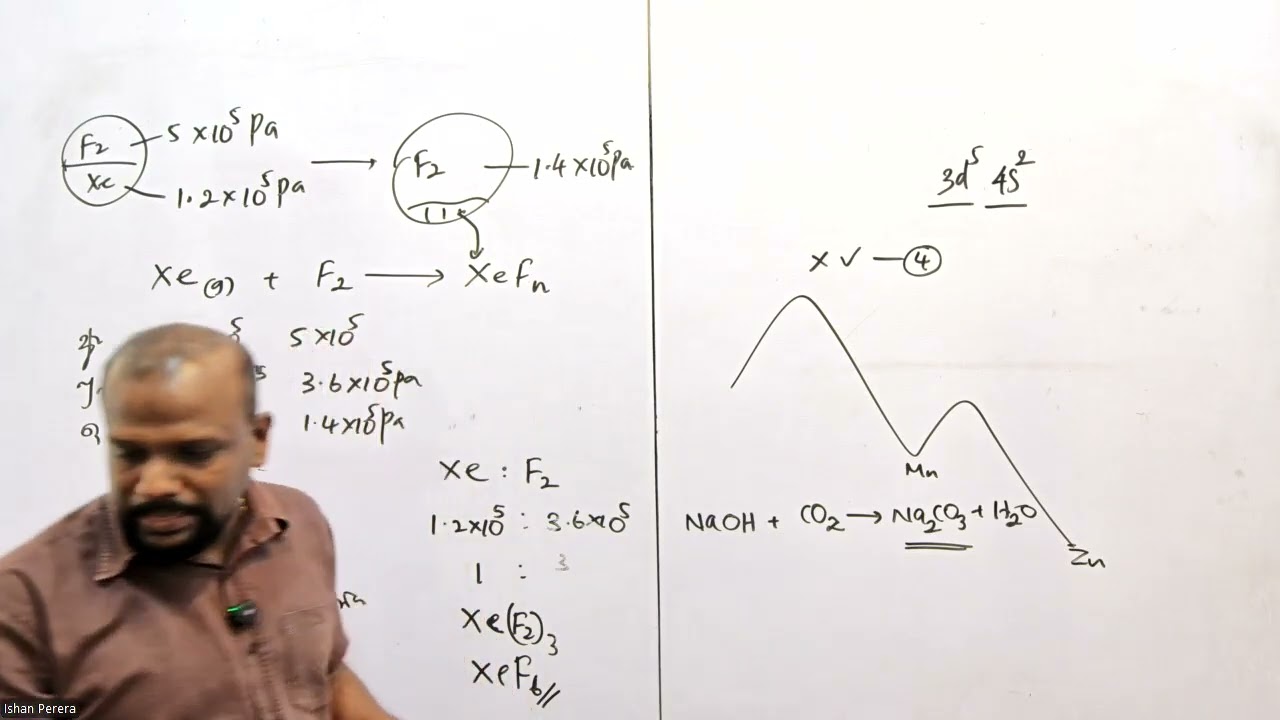 F₂ 5 ×10⁵ pa
Xe 1.2×10⁵ pa
F₂ 1.4×10⁵pa
Xe(g) + F₂ → XeFn
5 ×10⁵
3.6×10⁵pa
1.4×10⁵pa
Xe : F₂
1.2×10⁵ : 3.6×10⁵
1 : 3
Xe(F₂)₃
XeF₆
3d⁵ 4s²
× ✓ — ④
Mn
NaOH + CO₂ → Na₂CO₃ + H₂O
Zn
Ishan Perera